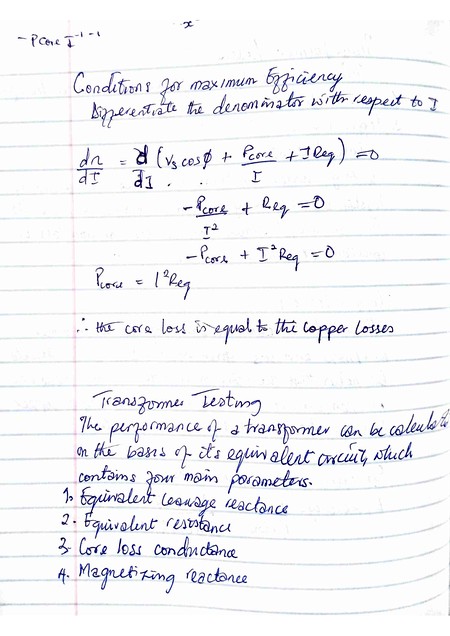 x
- Pcore I⁻¹⁻¹
Conditions for maximum Efficiency
Differentiate the denominator with respect to I
dη/dI = d/dI (Vs cosϕ + Pcore/I + I Req) = 0
- Pcore/I² + Req = 0
- Pcore + I² Req = 0
Pcore = I² Req
∴ the core loss is equal to the copper losses
Transformer Testing
The performance of a transformer can be calculate
on the basis of it's equivalent circuit, which
contains four main parameters.
1. Equivalent leakage reactance
2. Equivalent resistance
3. Core loss conductance
4. Magnetizing reactance